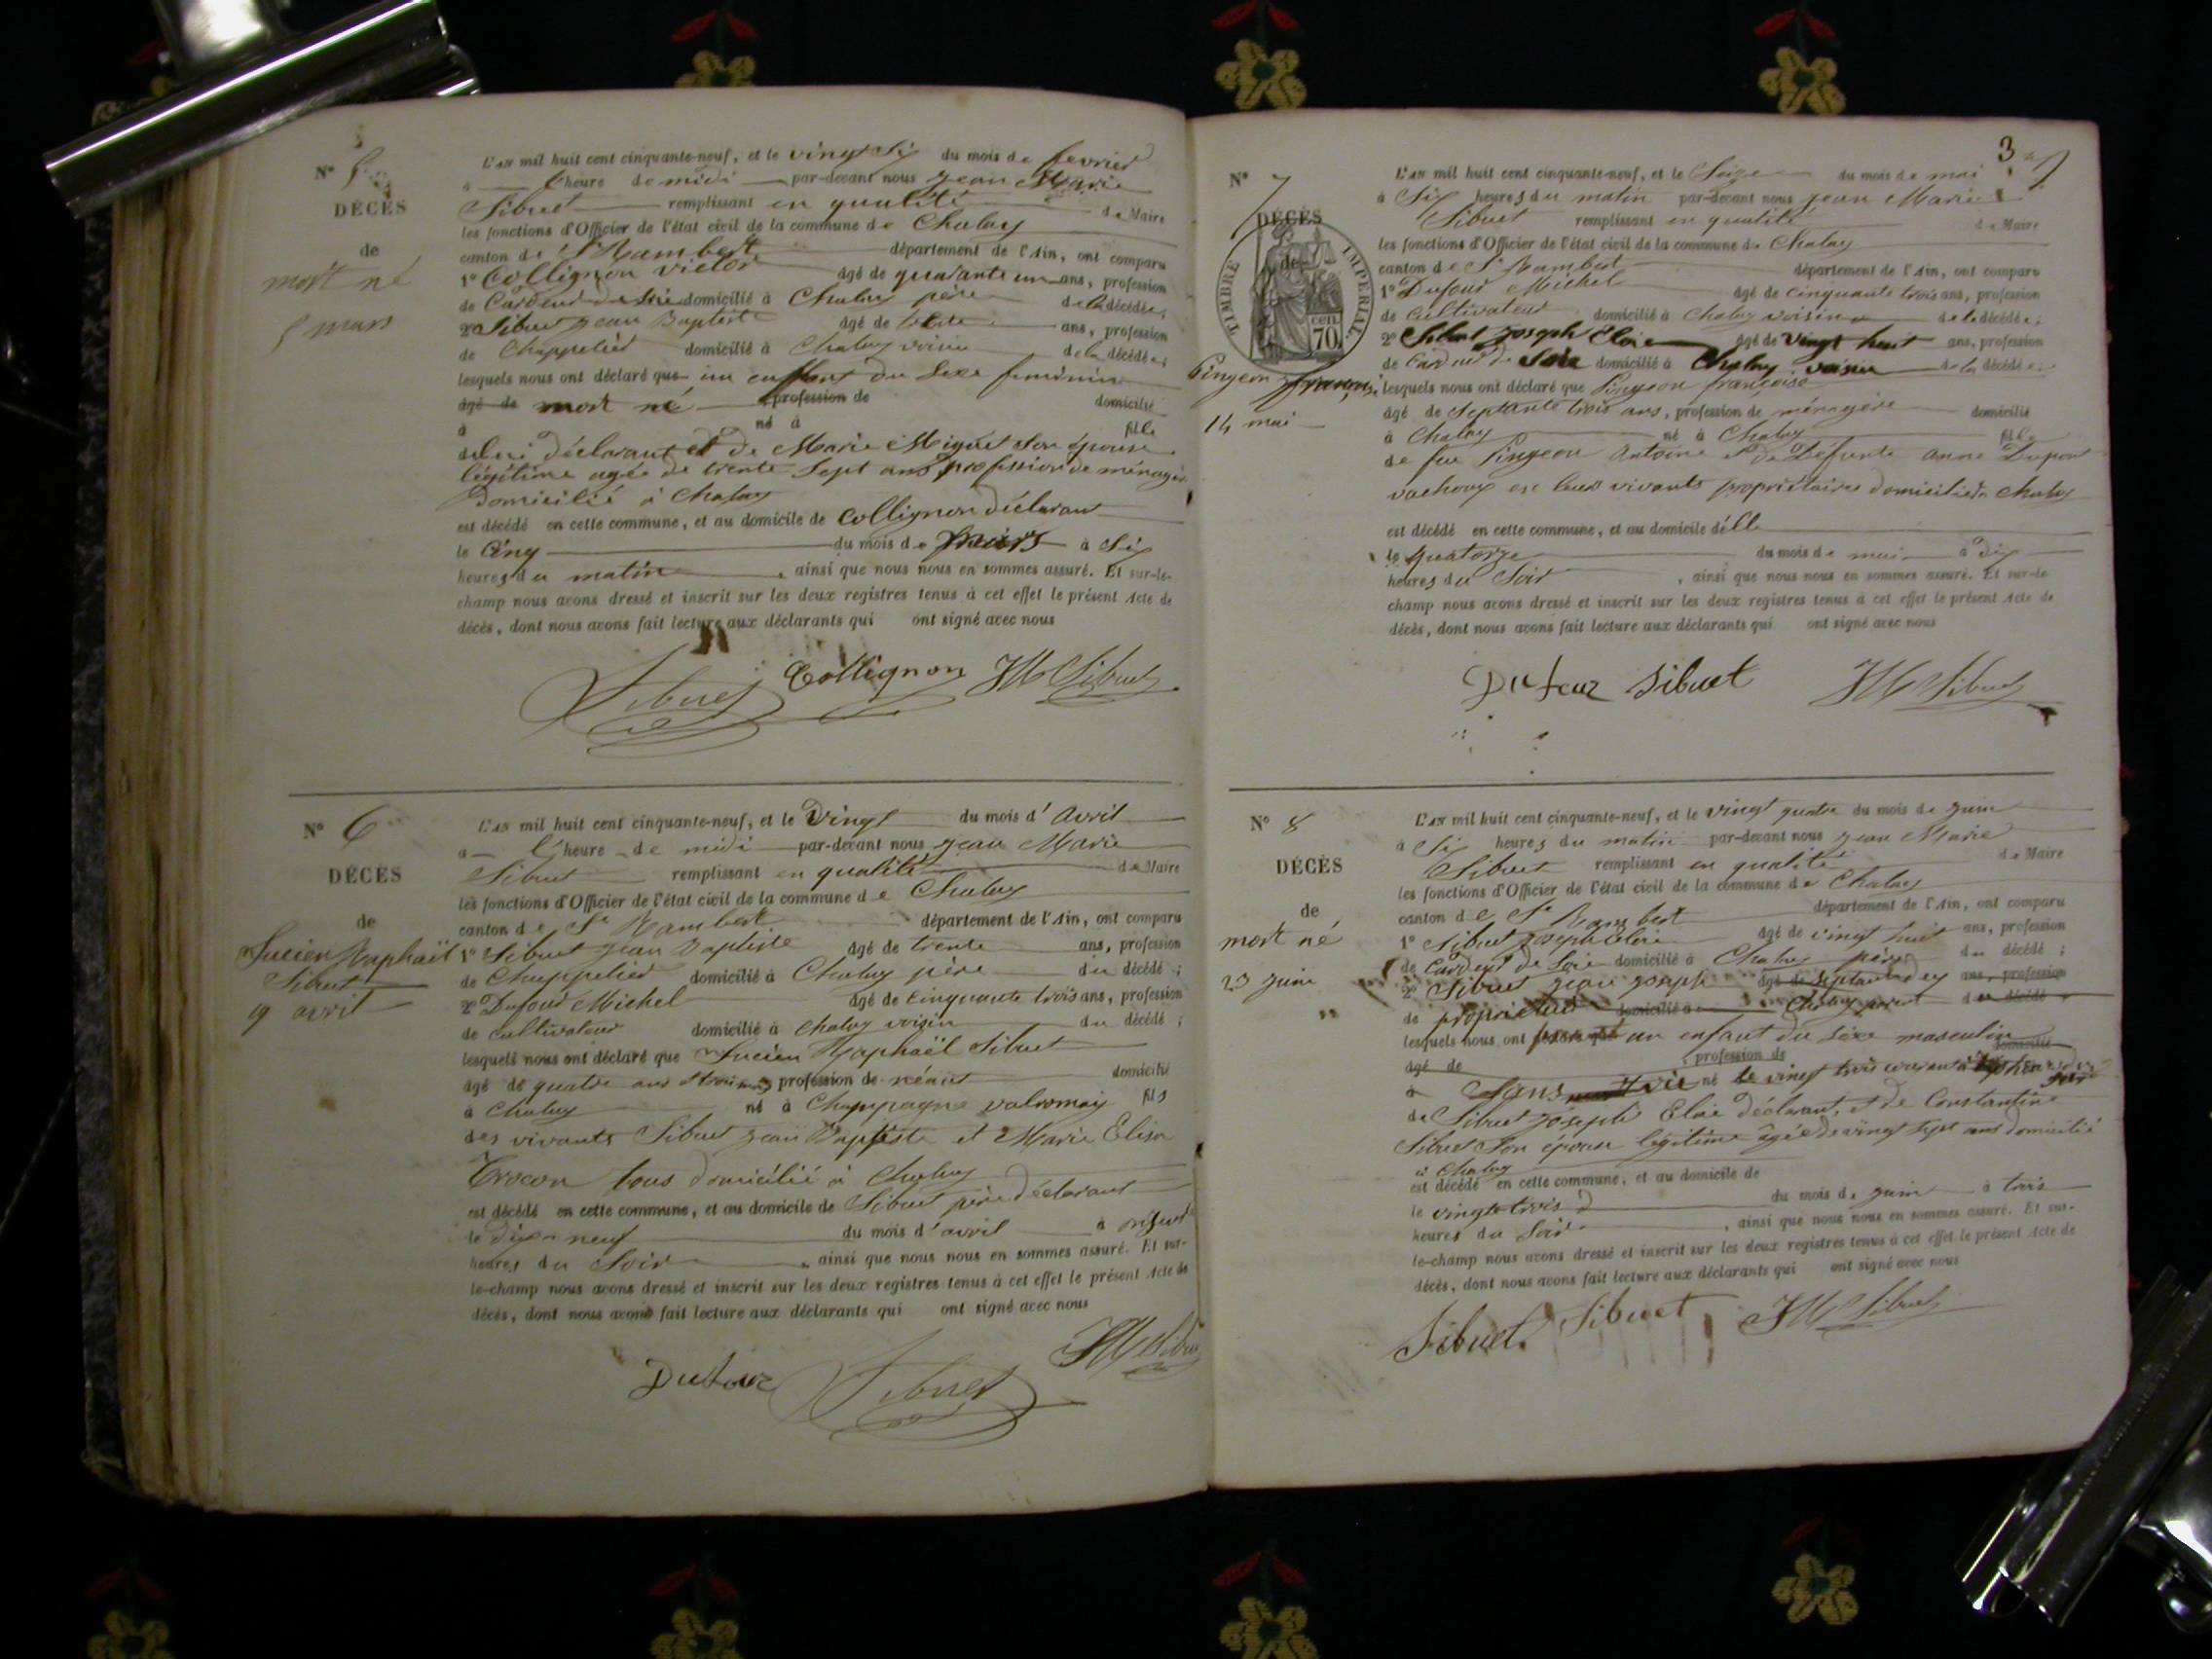 N° 5
DÉCÈS
de
mort né
5 mars
L'AN mil huit cent cinquante-neuf, et le vingt Six du mois de fevrier
à l heure de midi par-devant nous jean Marie
Sibuet remplissant en qualité de Maire
les fonctions d'Officier de l'état civil de la commune de Chaley
canton de St Rambert département de l'Ain, ont comparu
1° Collignon victor âgé de quarante un ans, profession
de Cardeur de Soie domicilié à Chaley père de la décédée;
2° Sibuet jean Baptiste âgé de trente ans, profession
de Chappelier domicilié à Chaley voisin de la décédée;
lesquels nous ont déclaré que un enffant du Sexe feminin
âgé de mort né profession de domicilié
à né à fille
de lui déclarant et de Marie Miguet Son épouse
légitime agée de trente Sept ans profession de ménagère
Domicilié à Chaley
est décédé en cette commune, et au domicile de Collignon déclarant
le Cinq du mois de mars à Six
heures du matin, ainsi que nous nous en sommes assuré. Et sur-le-
champ nous avons dressé et inscrit sur les deux registres tenus à cet effet le présent Acte de
décès, dont nous avons fait lecture aux déclarants qui ont signé avec nous
Sibuet Collignon JM Sibuet
N° 6
DÉCÈS
de
Lucien Raphaël
Sibuet
19 avril
L'AN mil huit cent cinquante-neuf, et le Vingt du mois d'Avril
à l'heure de midi par-devant nous jean Marie
Sibuet remplissant en qualité de Maire
les fonctions d'Officier de l'état civil de la commune de Chaley
canton de St Rambert département de l'Ain, ont comparu
1° Sibuet jean Baptiste âgé de trente ans, profession
de Chappelier domicilié à Chaley père du décédé;
2° Dufour Michel âgé de Cinquante trois ans, profession
de cultivateur domicilié à Chaley voisin du décédé;
lesquels nous ont déclaré que Lucien Raphaël Sibuet
âgé de quatre ans profession de néant domicilié
à Chaley né à Champagne valromay fils
des vivants Sibuet jean Baptiste et Marie Elisa
Trocon tous domicilié à Chaley
est décédé en cette commune, et au domicile de Sibuet père déclarant
le dix neuf du mois d'avril à
heures du Soir, ainsi que nous nous en sommes assuré. Et sur-
le-champ nous avons dressé et inscrit sur les deux registres tenus à cet effet le présent Acte de
décès, dont nous avons fait lecture aux déclarants qui ont signé avec nous
Dufour Sibuet JM Sibuet
3
N° 7
DÉCÈS
de
TIMBRE IMPERIAL
cen. 70.
Pingeon françoise
14 mai
L'AN mil huit cent cinquante-neuf, et le Seize du mois de mai
à Six heures du matin par-devant nous jean Marie
Sibuet remplissant en qualité de Maire
les fonctions d'Officier de l'état civil de la commune de Chaley
canton de St Rambert département de l'Ain, ont comparu
1° Dufour Michel âgé de cinquante trois ans, profession
de Cultivateur domicilié à Chaley voisin de la décédée;
2° Sibuet Joseph Eloie âgé de vingt huit ans, profession
de Cardeur de Soie domicilié à Chaley voisin de la décédée
lesquels nous ont déclaré que Pingeon françoise
âgé de Septante trois ans, profession de ménagère domicilié
à Chaley né à Chaley fille
de feu Pingeon Antoine et de Défunte Anne Dupont
vachoux en leurs vivants propriétaires domiciliés à Chaley
est décédé en cette commune, et au domicile d'Elle
le quatorze du mois de mai à dix
heures du Soir, ainsi que nous nous en sommes assuré. Et sur-le
champ nous avons dressé et inscrit sur les deux registres tenus à cet effet le présent Acte de
décès, dont nous avons fait lecture aux déclarants qui ont signé avec nous
Dufour Sibuet JM Sibuet
N° 8
DÉCÈS
de
mort né
23 juin
L'AN mil huit cent cinquante-neuf, et le vingt quatre du mois de juin
à Six heures du matin par-devant nous jean Marie
Sibuet remplissant en qualité de Maire
les fonctions d'Officier de l'état civil de la commune de Chaley
canton de St Rambert département de l'Ain, ont comparu
1° Sibuet Joseph Eloie âgé de vingt huit ans, profession
de Cardeur de Soie domicilié à Chaley père du décédé;
2° Sibuet jean joseph âgé de Septante ans, profession
de propriétaire domicilié à Chaley du décédé
lesquels nous ont déclaré que un enfant du Sexe masculin
âgé de profession de domicilié
à Sans vie né le vingt trois courant à
de Sibuet Joseph Eloie déclarant, et de Constantine
Sibuet Son épouse légitime âgée de vingt Sept ans domicilié
à Chaley
est décédé en cette commune, et au domicile de
le vingt trois du mois de juin à trois
heures du Soir, ainsi que nous nous en sommes assuré. Et sur-
le-champ nous avons dressé et inscrit sur les deux registres tenus à cet effet le présent Acte de
décès, dont nous avons fait lecture aux déclarants qui ont signé avec nous
Sibuet Sibuet JM Sibuet